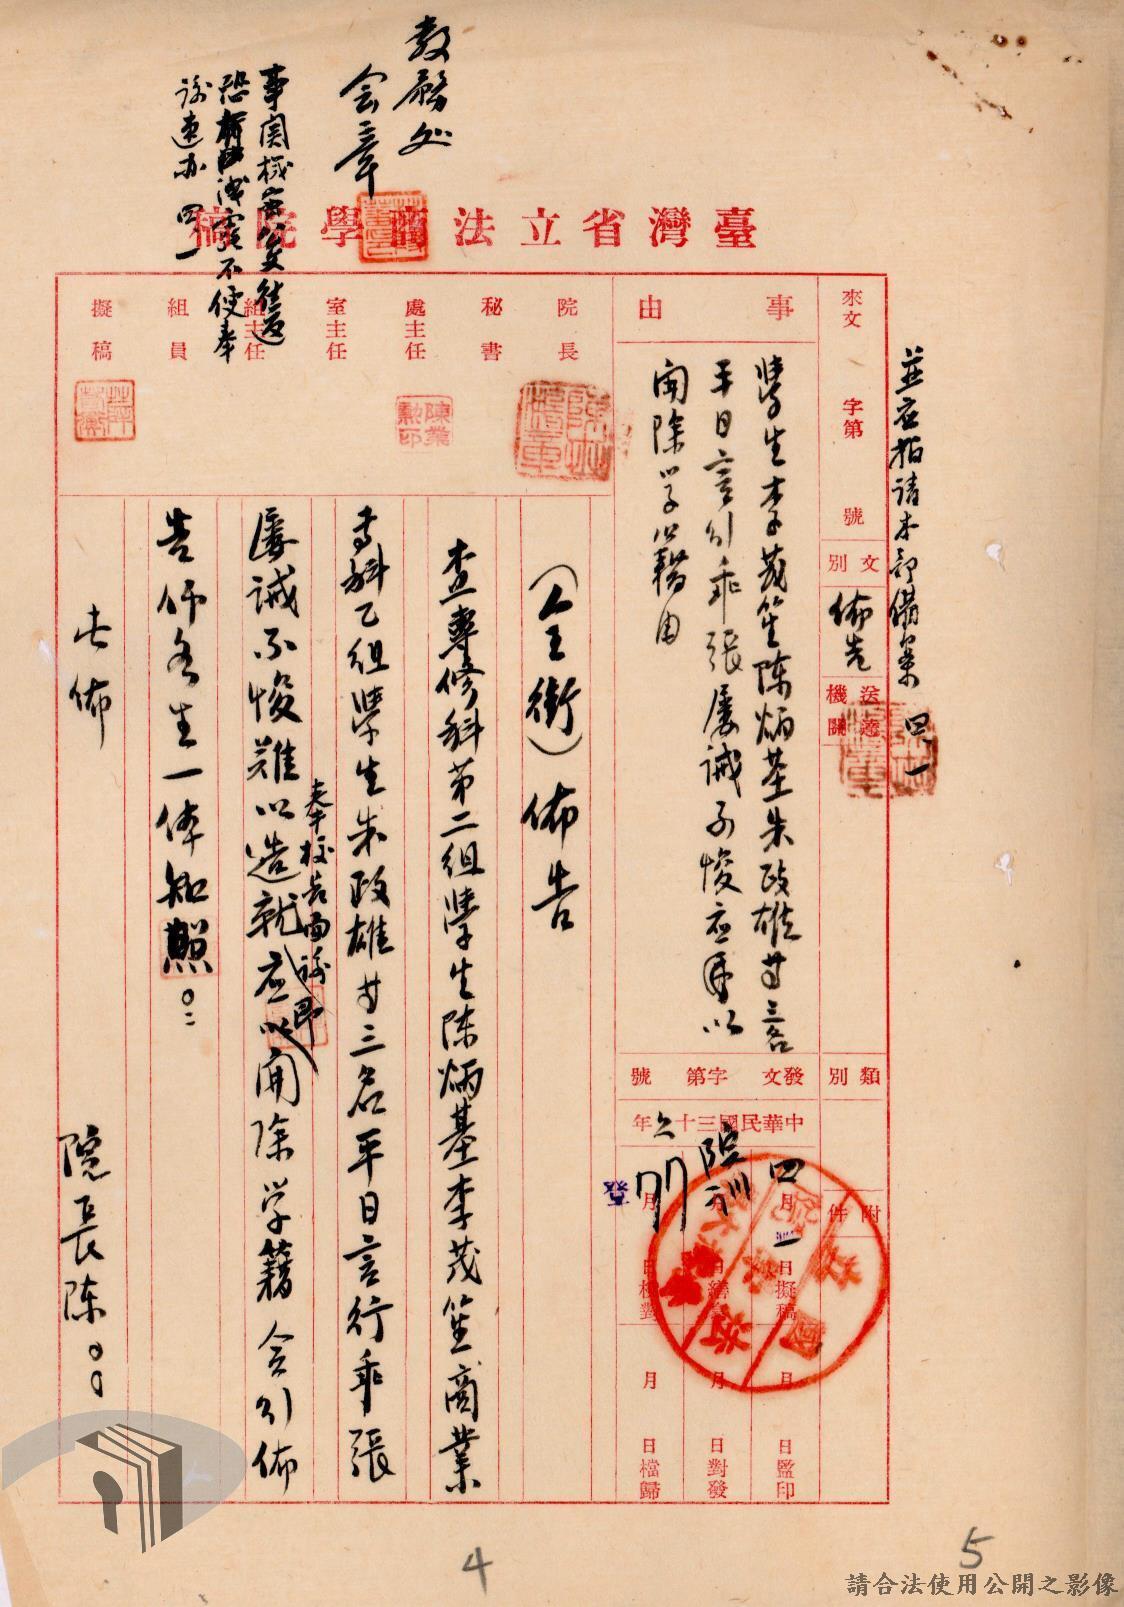 教務处
会章
臺灣省立法商學院稿
並应指請本部備案 四、一
來文 字第 號
文別 佈告
送達機關
類別
附件
事由
學生李茂笙陈炳基朱政雄廿三名
平日言行乖張屢誡不悛应予以
開除学籍由
發文 字第 號
中華民國三十 年
院訓
四月一日擬稿
月 日繕
月 日校對
月 日監印
月 日對發
月 日檔歸
登
院長
秘書
處主任
室主任
組主任
組員
擬稿
陳業勲印
(全銜)佈告
查專修科第二組學生陈炳基李茂笙商業
专科乙組學生朱政雄廿三名平日言行乖張
屢誡不悛难以造就应以開除学籍合行佈
奉校長面諭即
告仰各生一体知照。
此佈
院長陈○○
4
5
請合法使用公開之影像